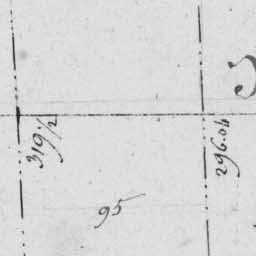 319½
296.04
95